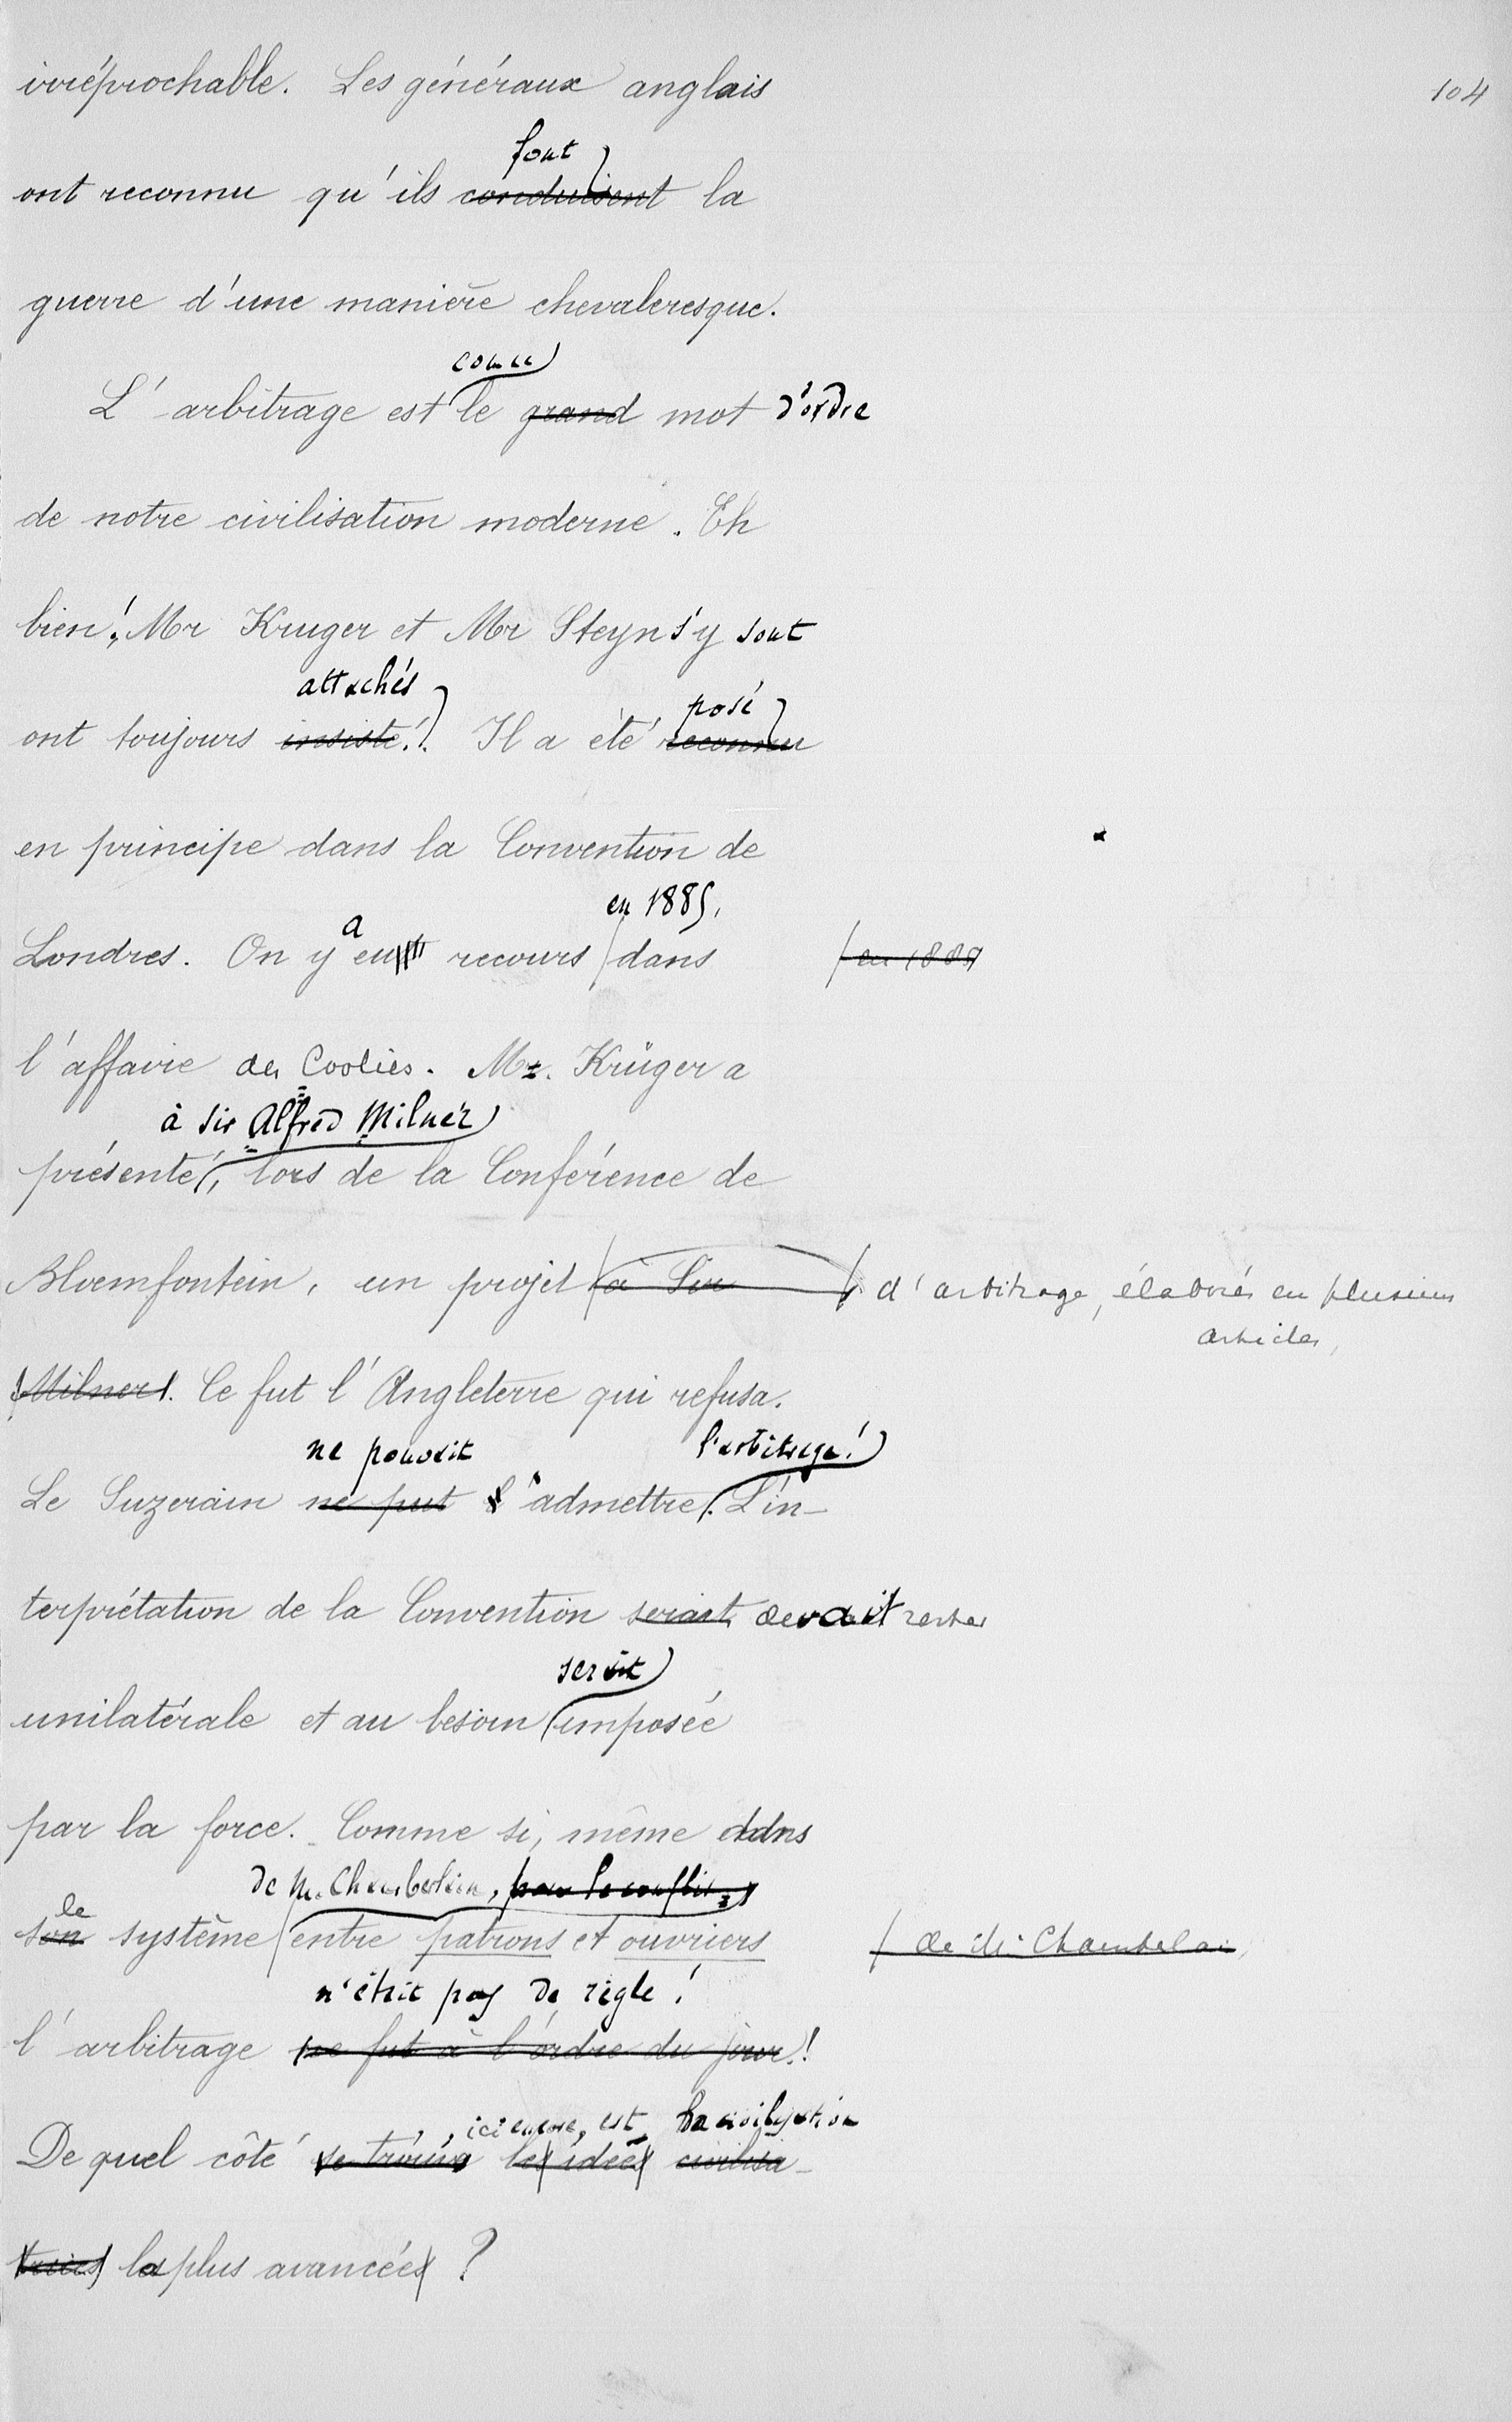 irréprochable. Les généraux anglais
104
font
ont reconnu qu'ils conduisent la
guerre d'une manière chevaleresque.
comme
L'arbitrage est le grand mot d'ordre
de notre civilisation moderne. Eh
bien! Mr Kruger et Mr Steyn s'y sont
attachés
posé
ont toujours insisté!. Il a été reconnu
en principe dans la Convention de
en 1885,
a
Londres. On y eu recours dans
en 1885
l'affaire des Coolies. Mr. Krüger a
à sir Alfred Milner
présenté, lors de la Conférence de
Bloemfontein, un projet à Sir d'arbitrage, élaboré en plusieurs
articles,
Milner. Ce fut l'Angleterre qui refusa.
ne pouvait
l'arbitrage!
Le Suzerain ne put l'admettre. L'in-
terprétation de la Convention serait devait rester
serait
unilatérale et au besoin imposée
par la force. Comme si, même dans
de M. Chamberlain, pour le conflit
le
son système entre patrons et ouvriers
de Mr Chamberlain,
n'était pas de règle!
l'arbitrage ne fut à l'ordre du jour!
, ici encore, est la civilisation
De quel côté se trouve les idées civilisa-
trices la plus avancées ?